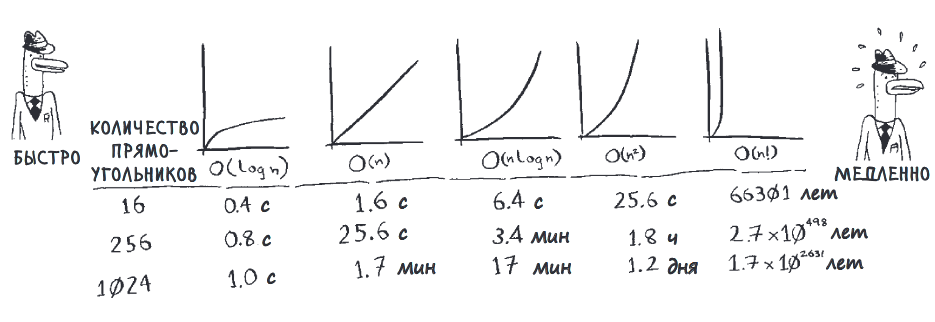 БЫСТРО
КОЛИЧЕСТВО
ПРЯМО-
УГОЛЬНИКОВ
O(log n) O(n) O(n log n) O(n²) O(n!)
МЕДЛЕННО
16 0.4 с 1.6 с 6.4 с 25.6 с 66301 лет
256 0.8 с 25.6 с 3.4 мин 1.8 ч 2.7×10⁴⁹⁸ лет
1024 1.0 с 1.7 мин 17 мин 1.2 дня 1.7×10²⁶³¹ лет